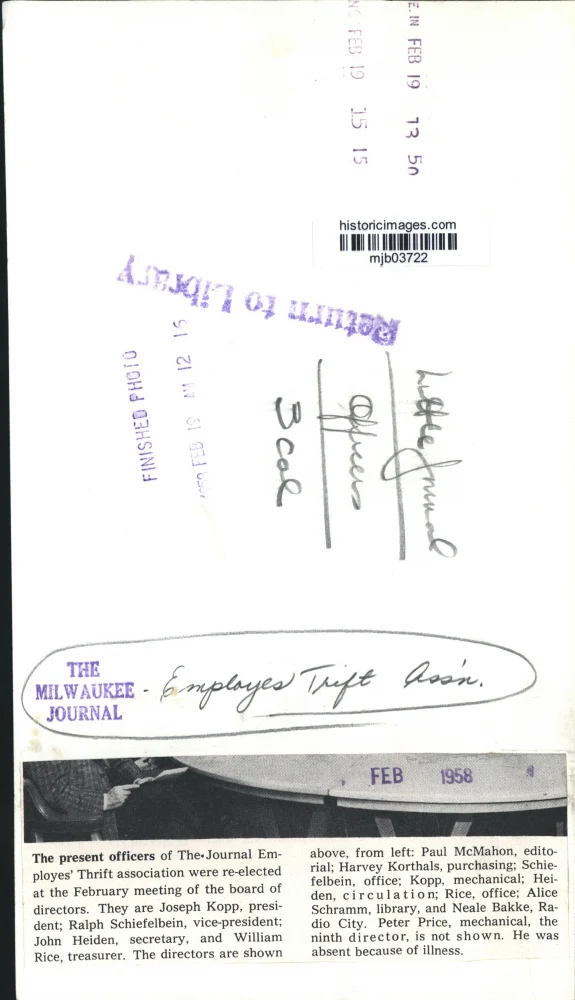 E. IN FEB 19 13 50
FEB 19 15 15
historicimages.com
mjb03722
Return to Library
FEB 19 AM 12 16
FINISHED PHOTO
Little Journal
Officers
3 col
THE
MILWAUKEE - Employes Trift Ass'n.
JOURNAL
FEB 1958
The present officers of The Journal Em-
ployes' Thrift association were re-elected
at the February meeting of the board of
directors. They are Joseph Kopp, presi-
dent; Ralph Schiefelbein, vice-president;
John Heiden, secretary, and William
Rice, treasurer. The directors are shown
above, from left: Paul McMahon, edito-
rial; Harvey Korthals, purchasing; Schie-
felbein, office; Kopp, mechanical; Hei-
den, circulation; Rice, office; Alice
Schramm, library, and Neale Bakke, Ra-
dio City. Peter Price, mechanical, the
ninth director, is not shown. He was
absent because of illness.